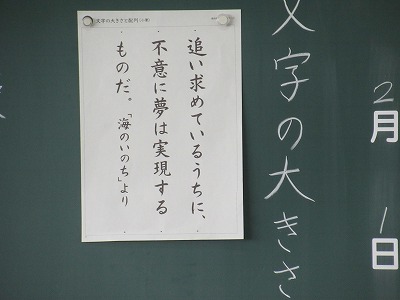 文字の大きさ
2月
1日
文字の大きさと配列
追い求めているうちに、
不意に夢は実現する
ものだ。「海のいのち」より